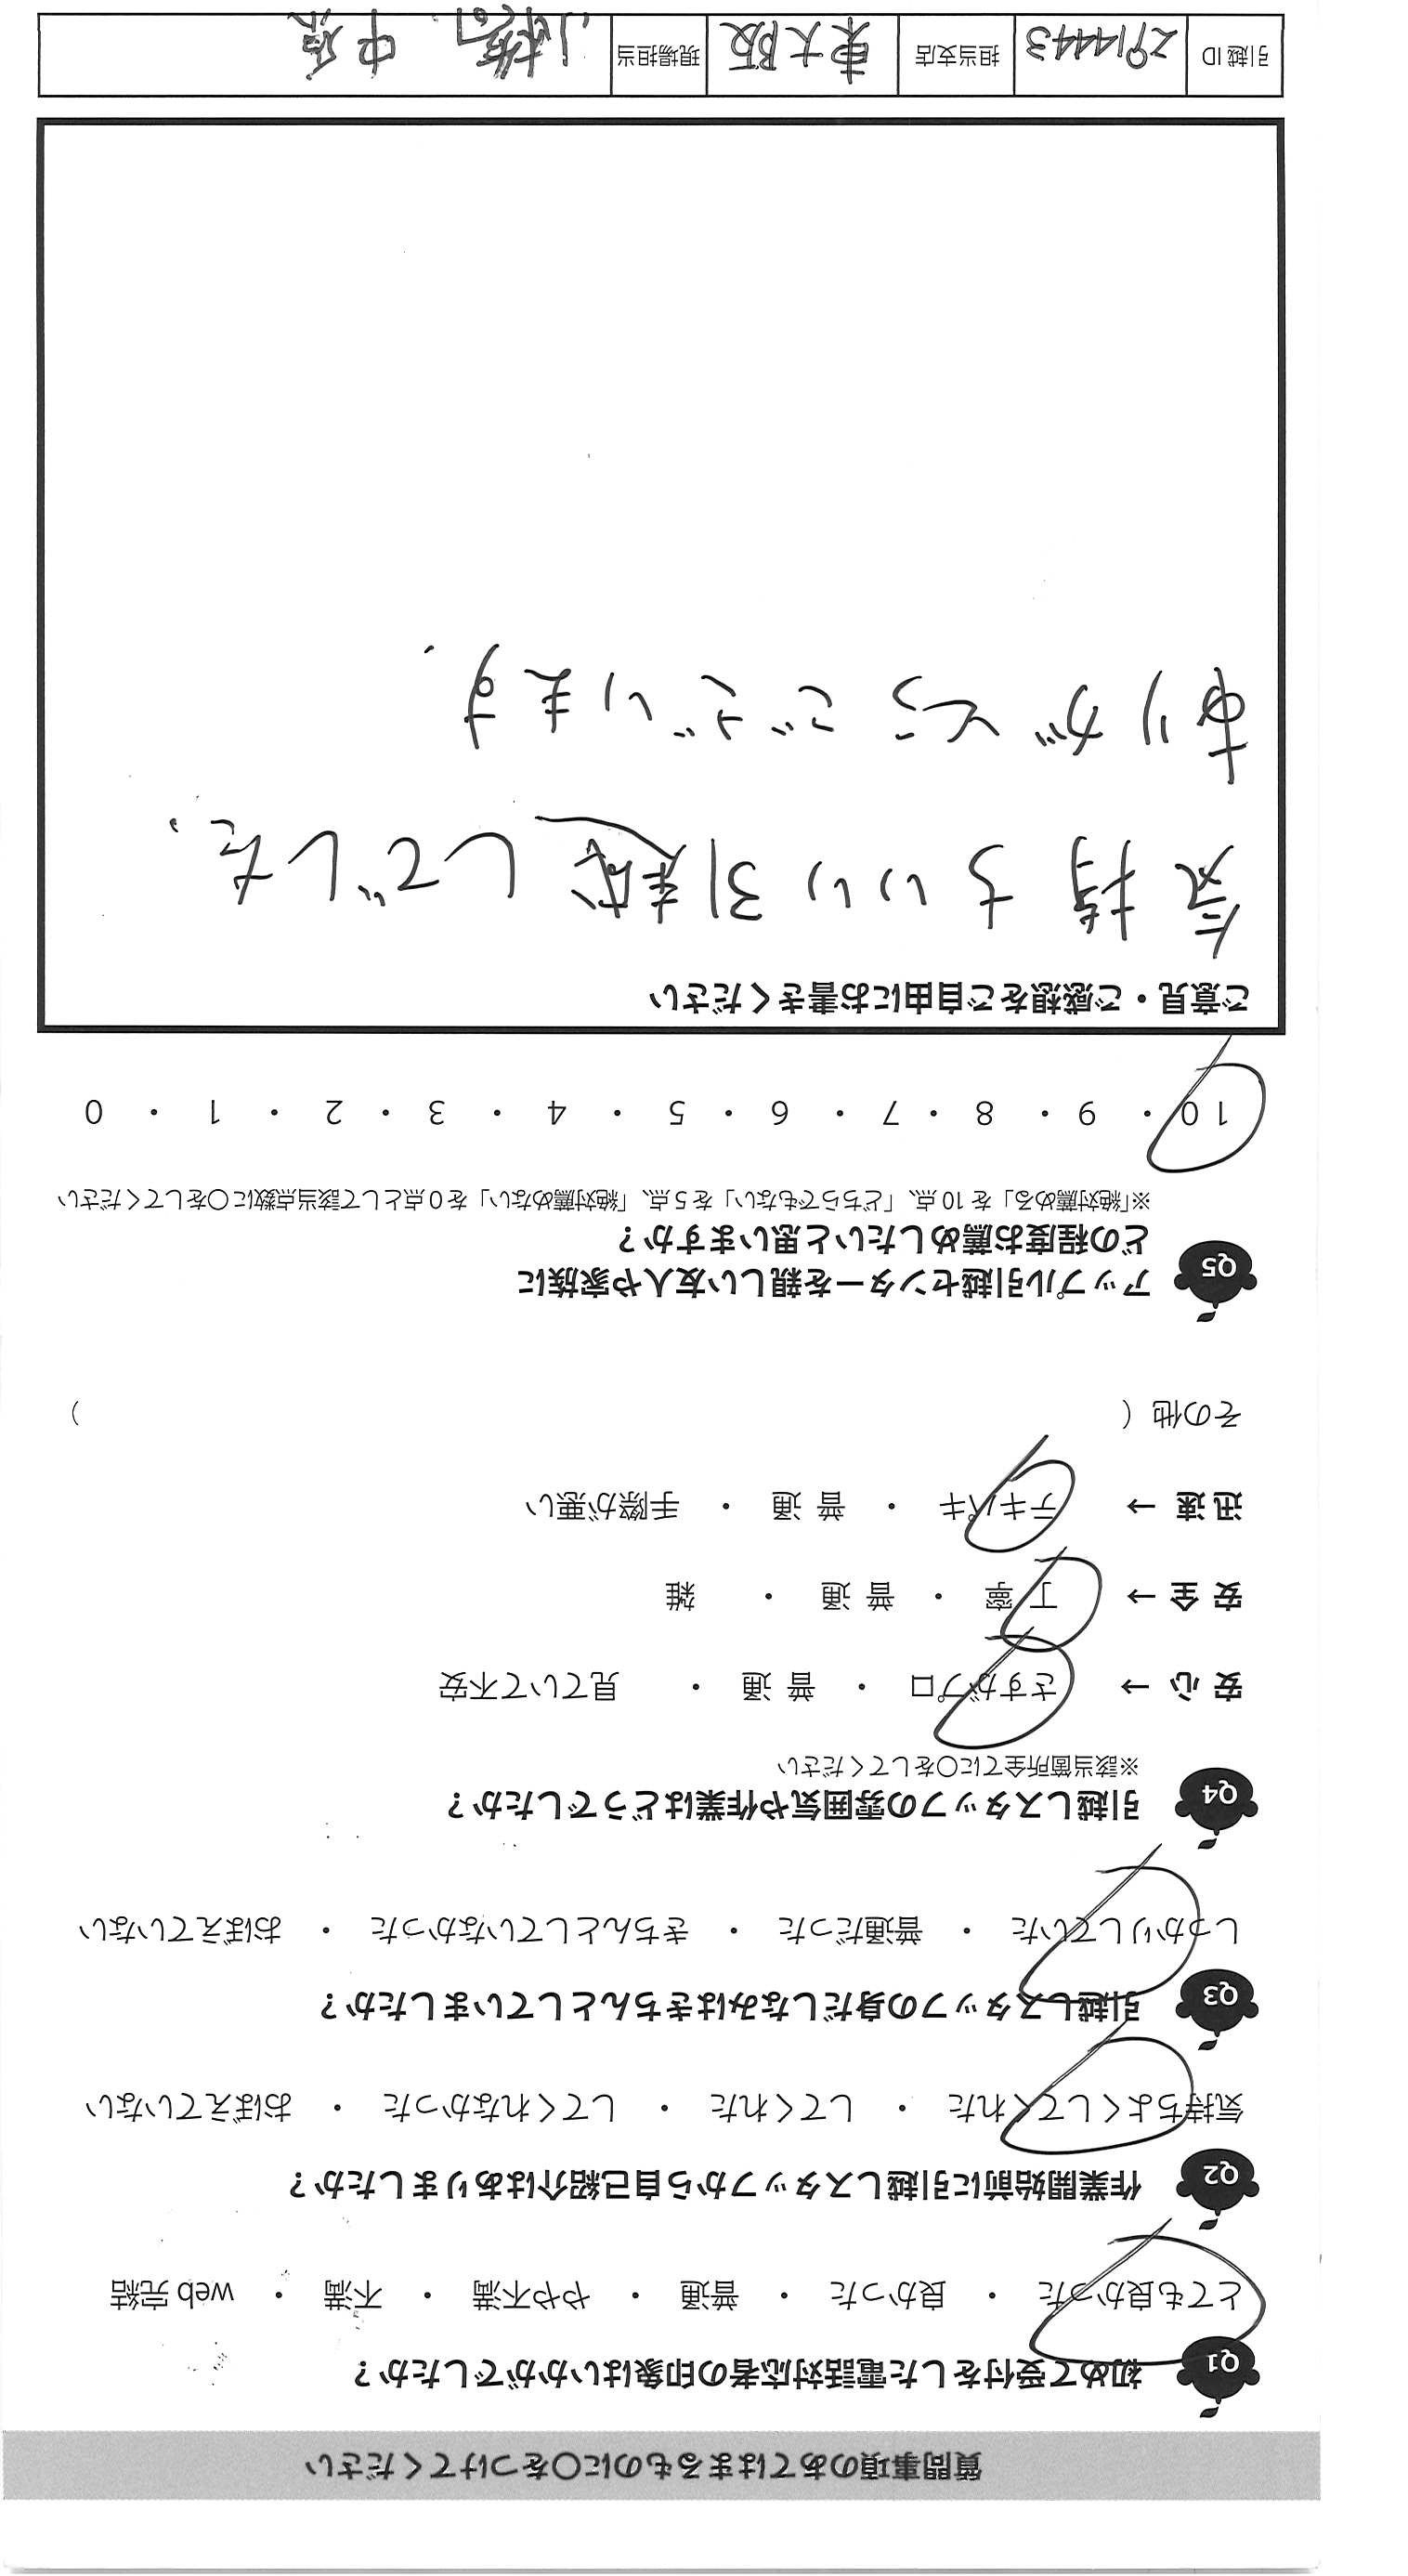 質問事項のあてはまるものに〇をつけてください
Q1 初めて受付をした電話対応者の印象はいかがでしたか？
とても良かった ・ 良かった ・ 普通 ・ やや不満 ・ 不満 ・ web 完結
Q2 作業開始前に引越しスタッフから自己紹介はありましたか？
気持ちよくしてくれた ・ してくれた ・ してくれなかった ・ おぼえていない
Q3 引越しスタッフの身だしなみはきちんとしていましたか？
しっかりしていた ・ 普通だった ・ きちんとしていなかった ・ おぼえていない
Q4 引越しスタッフの雰囲気や作業はどうでしたか？
※該当箇所全てに〇をしてください
安 心 → さすがプロ ・ 普 通 ・ 見ていて不安
安 全 → 丁 寧 ・ 普 通 ・ 雑
迅 速 → テキパキ ・ 普 通 ・ 手際が悪い
その他（ ）
Q5 アップル引越センターを親しい友人や家族に
どの程度お薦めしたいと思いますか？
※「絶対薦める」を 10 点、「どちらでもない」を 5 点、「絶対薦めない」を 0 点として該当点数に〇をしてください
10 ・ 9 ・ 8 ・ 7 ・ 6 ・ 5 ・ 4 ・ 3 ・ 2 ・ 1 ・ 0
ご意見・ご感想をご自由にお書きください
気持ちいい引越しでした。
ありがとうございます.
引越 ID 2914443 担当支店 東大阪 現場担当 中